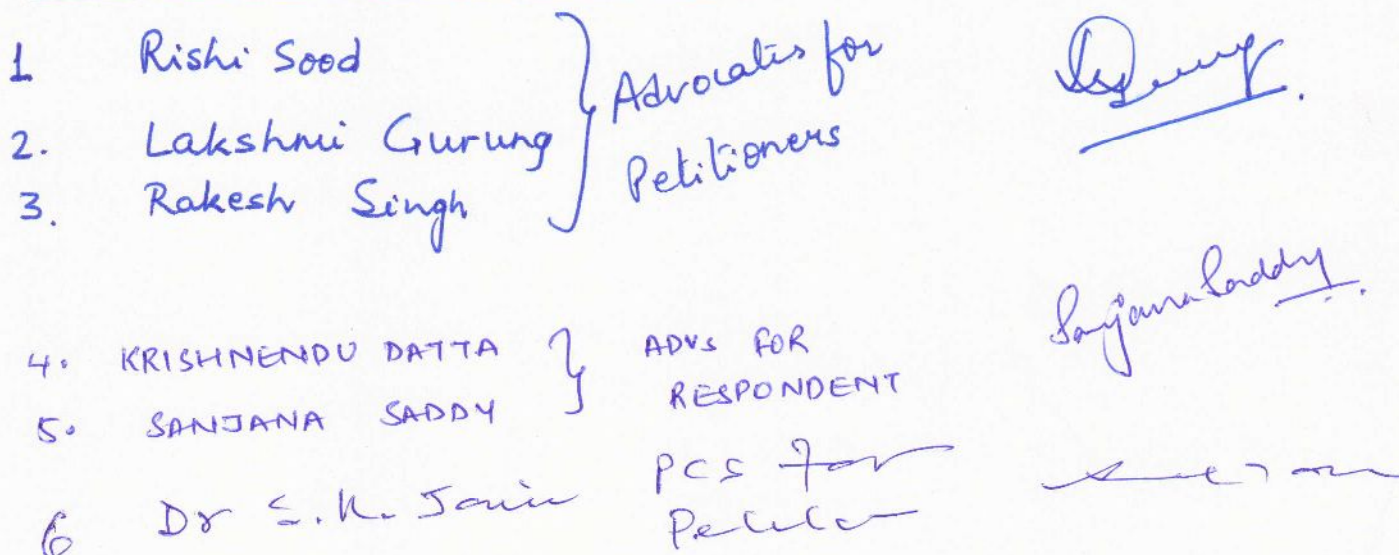 1 Rishi Sood
2. Lakshmi Gurung
3. Rakesh Singh
} Advocates for
Petitioners
4. KRISHNENDU DATTA } ADVS FOR
5. SANJANA SADDY RESPONDENT
Sanjana Saddy
6 Dr S. K. Jain PCS for